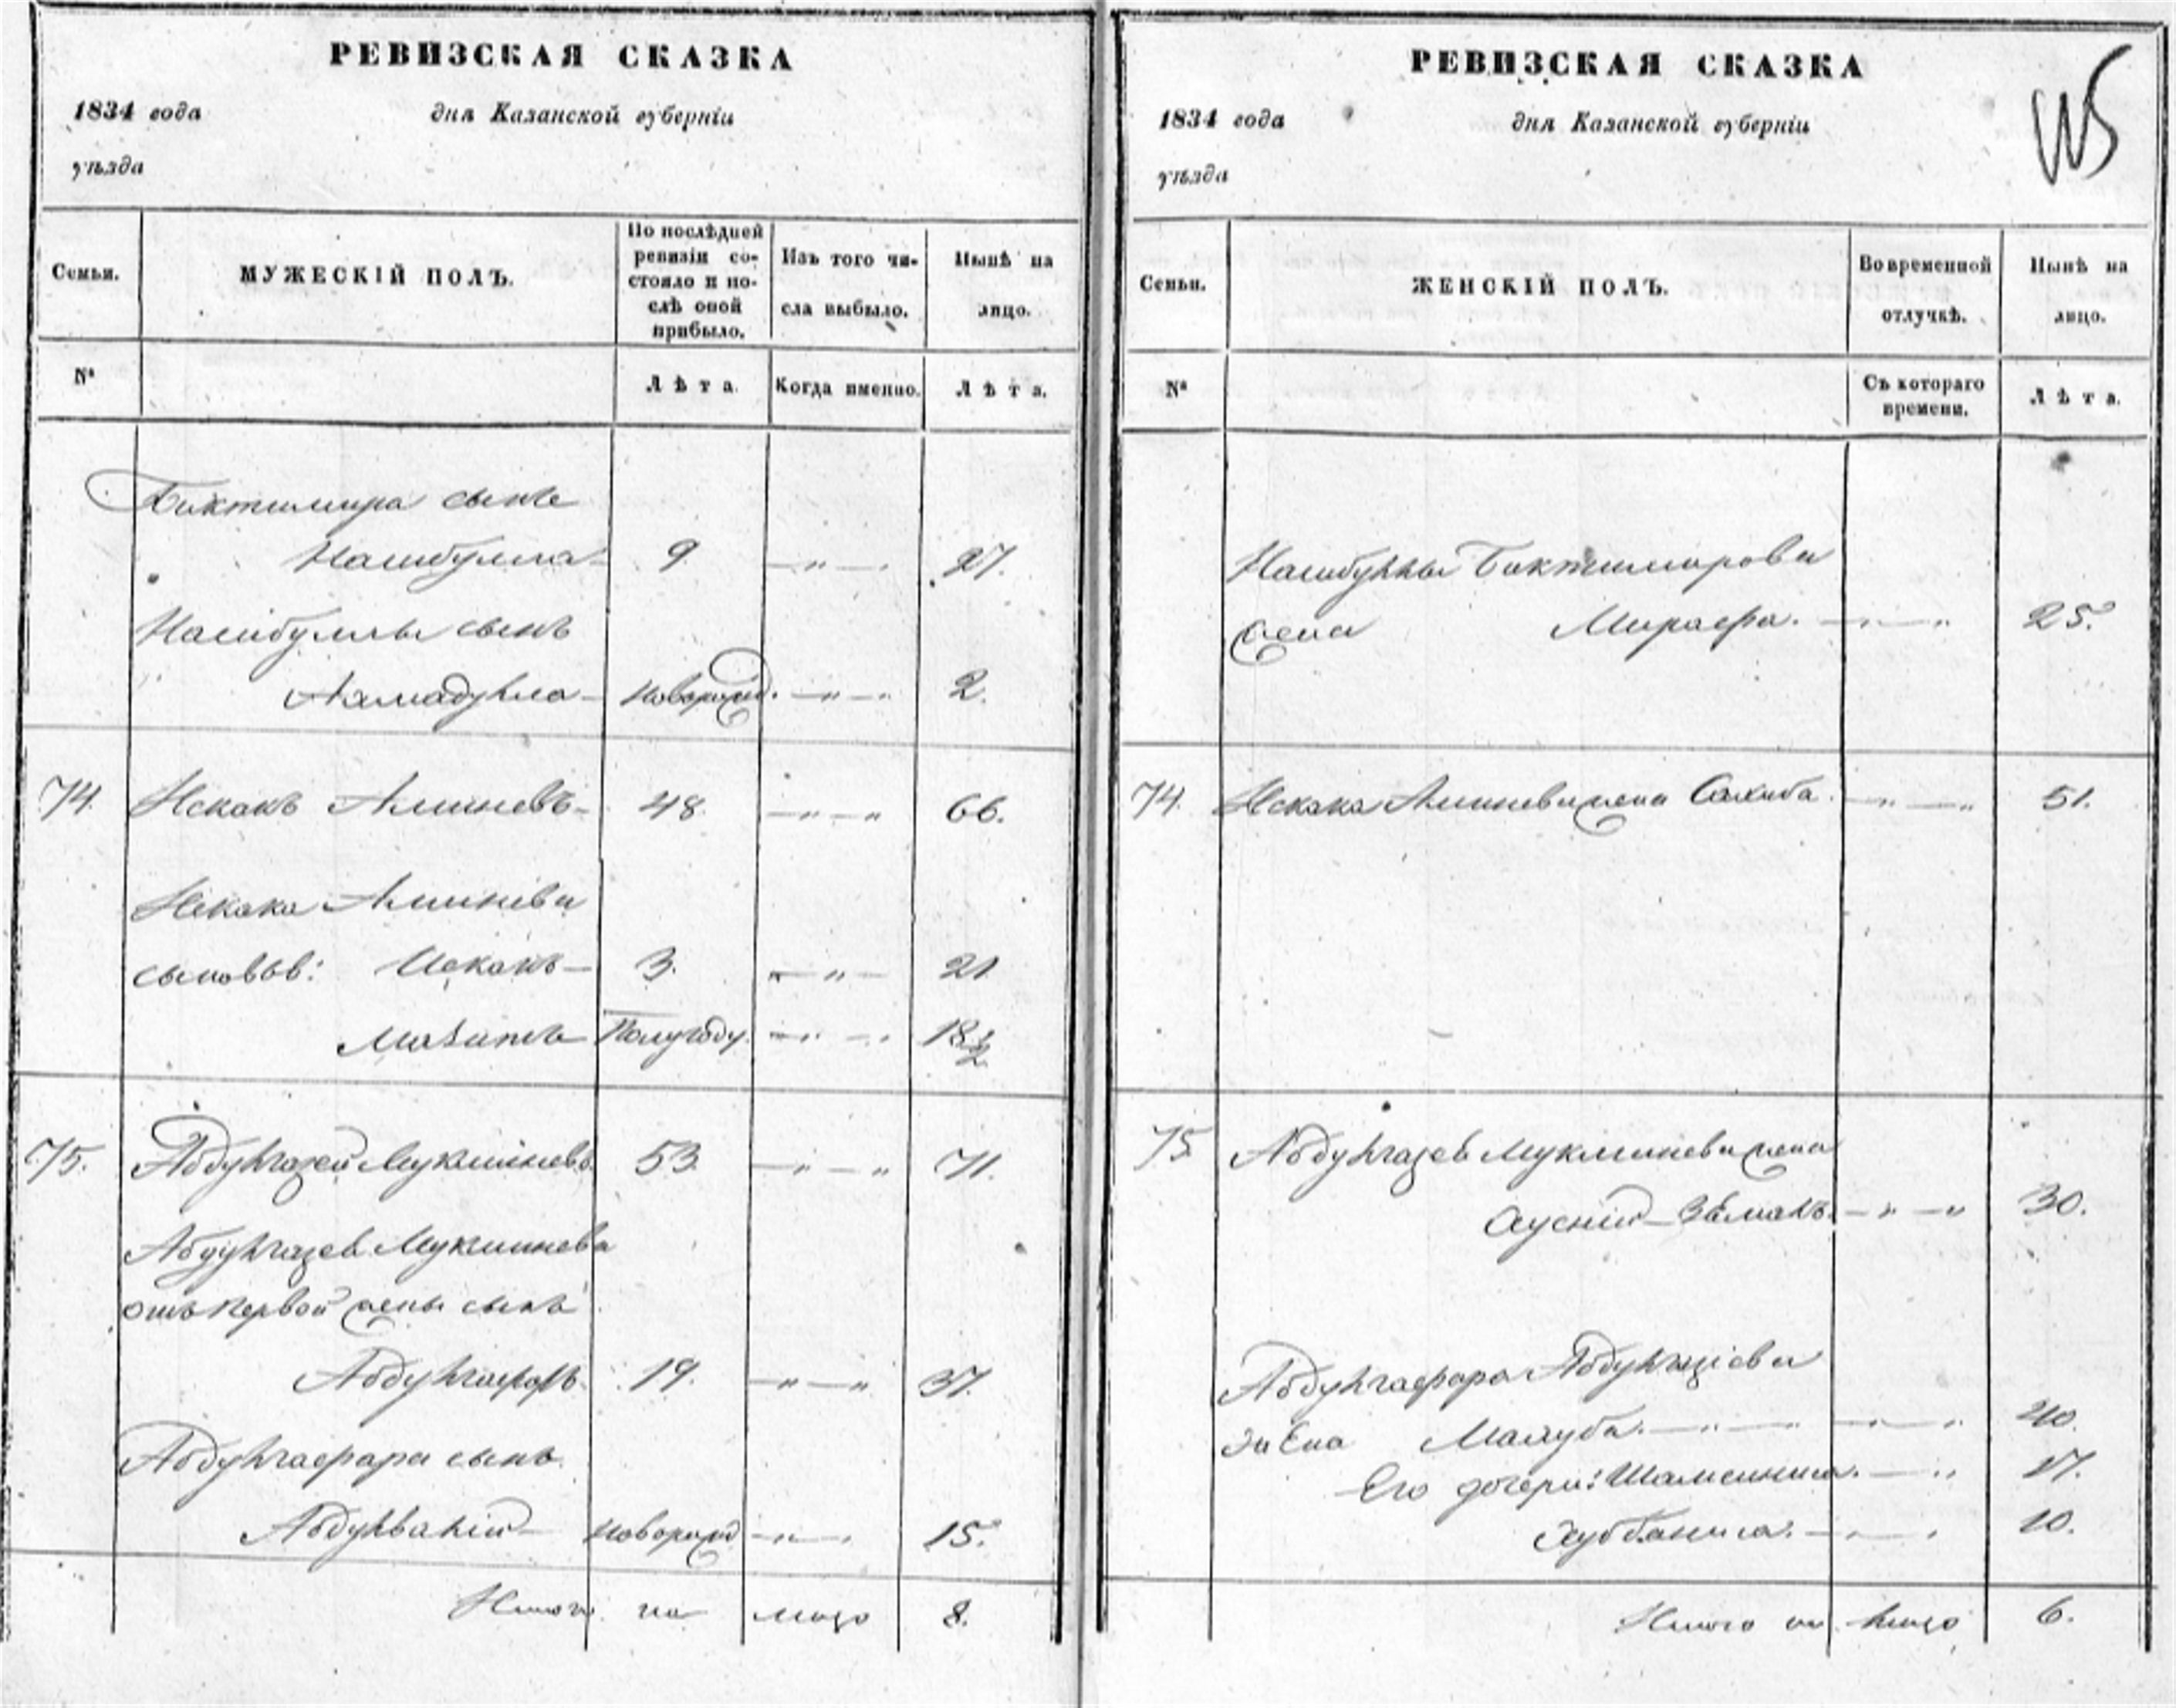 РЕВИЗСКАЯ СКАЗКА
1834 года дня Казанской губерніи
уѣзда
Семьи.
МУЖЕСКІЙ ПОЛЪ.
По послѣдней
ревизіи со-
стояло и по-
слѣ оной
прибыло.
Изъ того чи-
сла выбыло.
Нынѣ на
лицо.
№
Лѣта.
Когда именно.
Лѣта.
Биктимира сынъ
Насибулла 9 27.
Насибуллы сынъ
Ахмадулла новорожд. 2.
74. Искакъ Аминевъ 48. 66.
Искака Аминева
сыновья: Исхакъ 3. 21
полугоду. 18½
75. Абдулгазей Мукминевъ 53. 71.
Абдулгазея Мукминева
отъ первой жены сынъ
Абдулгафаръ 19. 37.
Абдулгафара сынъ
новорожд 15.
Итого на лицо 8.
РЕВИЗСКАЯ СКАЗКА
1834 года дня Казанской губерніи
уѣзда
Семьи.
ЖЕНСКІЙ ПОЛЪ.
Во временной
отлучкѣ.
Нынѣ на
лицо.
№
Съ котораго
времени.
Лѣта.
Насибуллы Биктимирова
жена 25.
74. Искака Аминева жена Сахиба. 51.
75 Абдулгазея Мукминева жена
30.
Абдулгафара Абдулгазіева
жена 40.
Его дочери: Шамсиниса. 17.
10.
Итого на лицо 6.